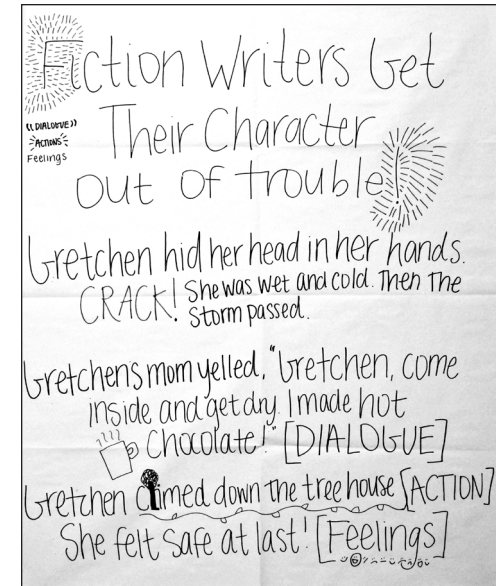 Fiction Writers Get
Their Character
Out Of trouble!
((DIALOGUE))
ACTIONS
Feelings
Gretchen hid her head in her hands.
CRACK! She was wet and cold. Then The
Storm passed.
Gretchens mom yelled, "Gretchen, come
inside and get dry. I made hot
Chocolate!" [DIALOGUE]
Gretchen climed down the tree house [ACTION]
She felt safe at last! [Feelings]